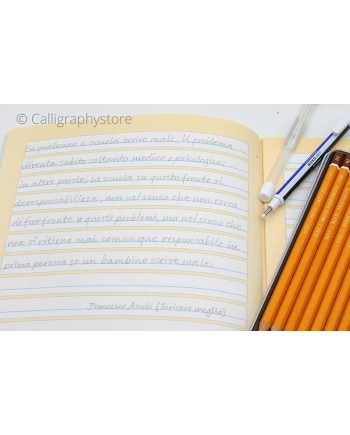 © Calligraphystore
Se qualcuno a scuola scrive male, il problema
diventa subito soltanto medico o psicologico;
in altre parole, la scuola su questo fronte si
deresponsabilizza, non nel senso che non cerca
di far fronte a questi problemi, ma nel senso che
non si ritiene mai comunque responsabile in
prima persona se un bambino scrive male.
Francesco Ascoli (Scrivere meglio)